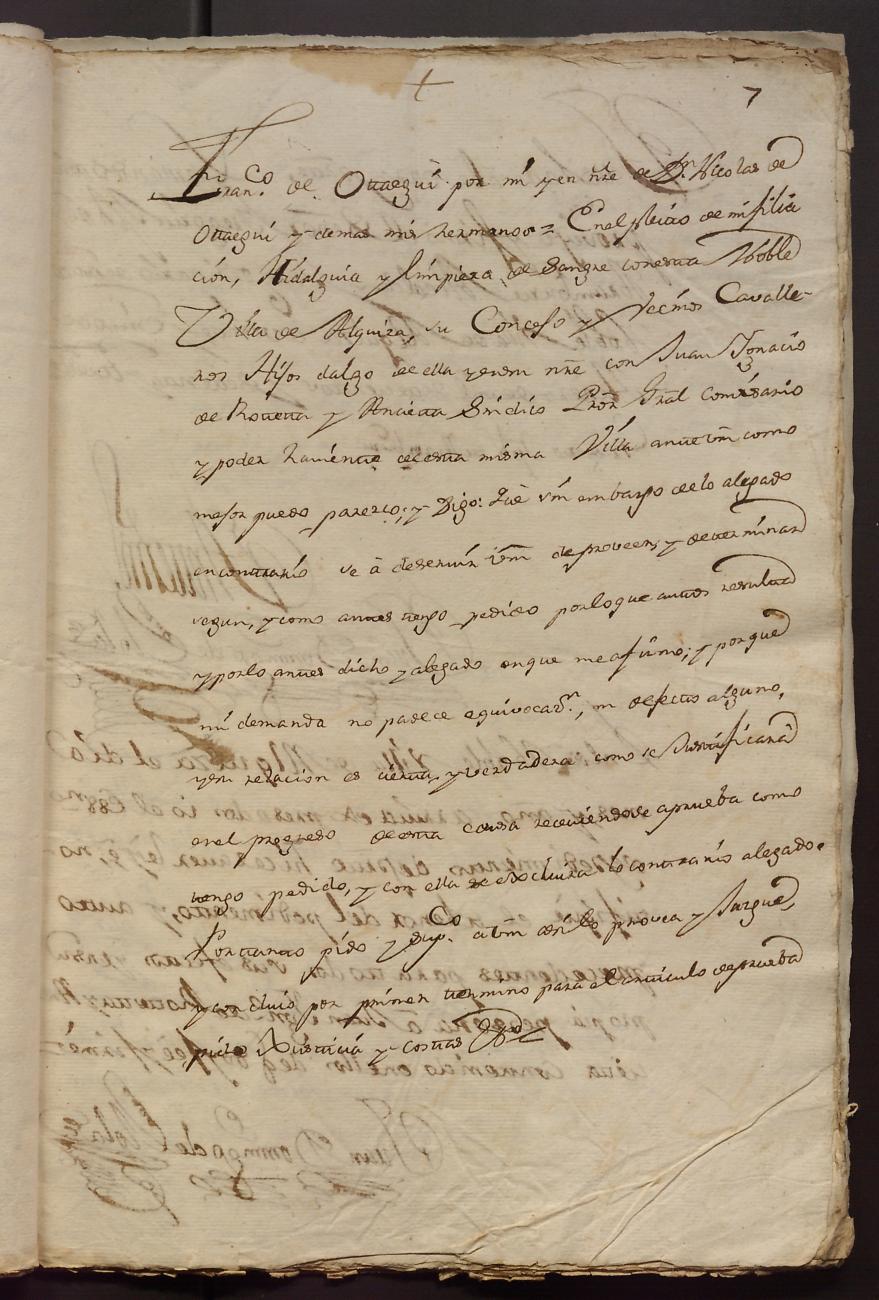 +
7
Franco. de Ottaegui por mi y en nre de Dn. Nicolas de
Ottaegui y demas mis hermanos = En el pleito de mi filia
cion, Hidalguia y limpieza de sangre con esta Noble
Villa de Alquiza, su Concejo y Vecinos Cavalle-
ros Hijos dalgo de ella y en su nre con Juan Ignacio
de Rotteta y Ancieta Sindico Pror. Gral Comisario
y poder haviente de esta misma Villa ante Vm como
mejor puedo parezco; y Digo: que sin embargo de lo alegado
en contrario se à de servir Vm de proveer, y determinar
segun, y como antes tengo pedido por lo que autos resulta
y por lo antes dicho y alegado en que me afirmo; y porque
mi demanda no padece equivocasn., ni defecto alguno,
y su relacion es cierta, y verdadera como se Justificarà
en el progreso de esta causa reciviendose a prueba como
tengo pedido, y con ella se excluira lo contrario alegado.
Portanto pido y supco. a Vm asi lo provea y Juzgue,
y concluio por primer termino para el articulo de prueba
pido Justicia y costas